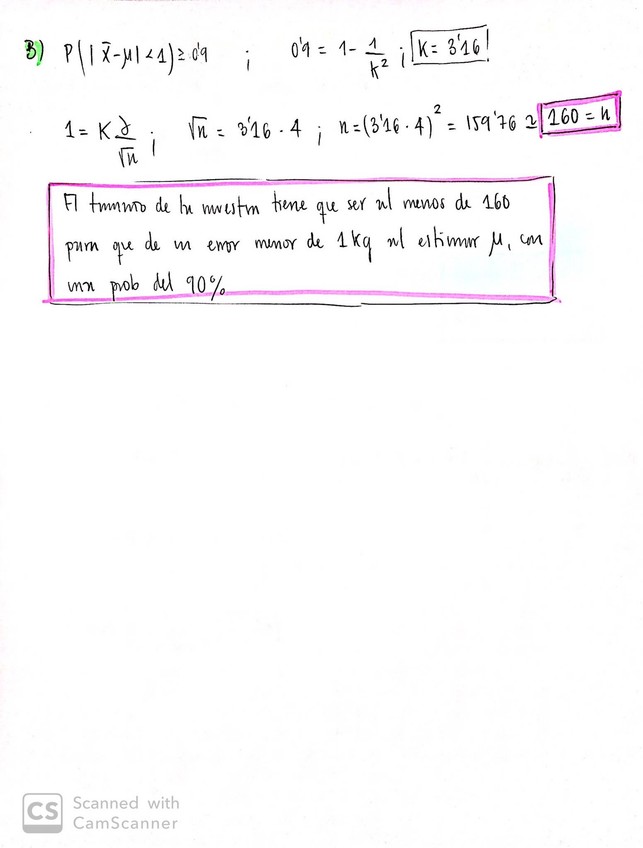 B) P(|x̄-μ|<1)≥0'9 ; 0'9 = 1- 1/k² ; K= 3'16!
1 = K σ/√n ; √n = 3'16 · 4 ; n=(3'16 · 4)² = 159'76 ≃ 160 = n
El tamaño de la muestra tiene que ser al menos de 160
para que de un error menor de 1kg al estimar μ, con
una prob del 90%
CS Scanned with
CamScanner